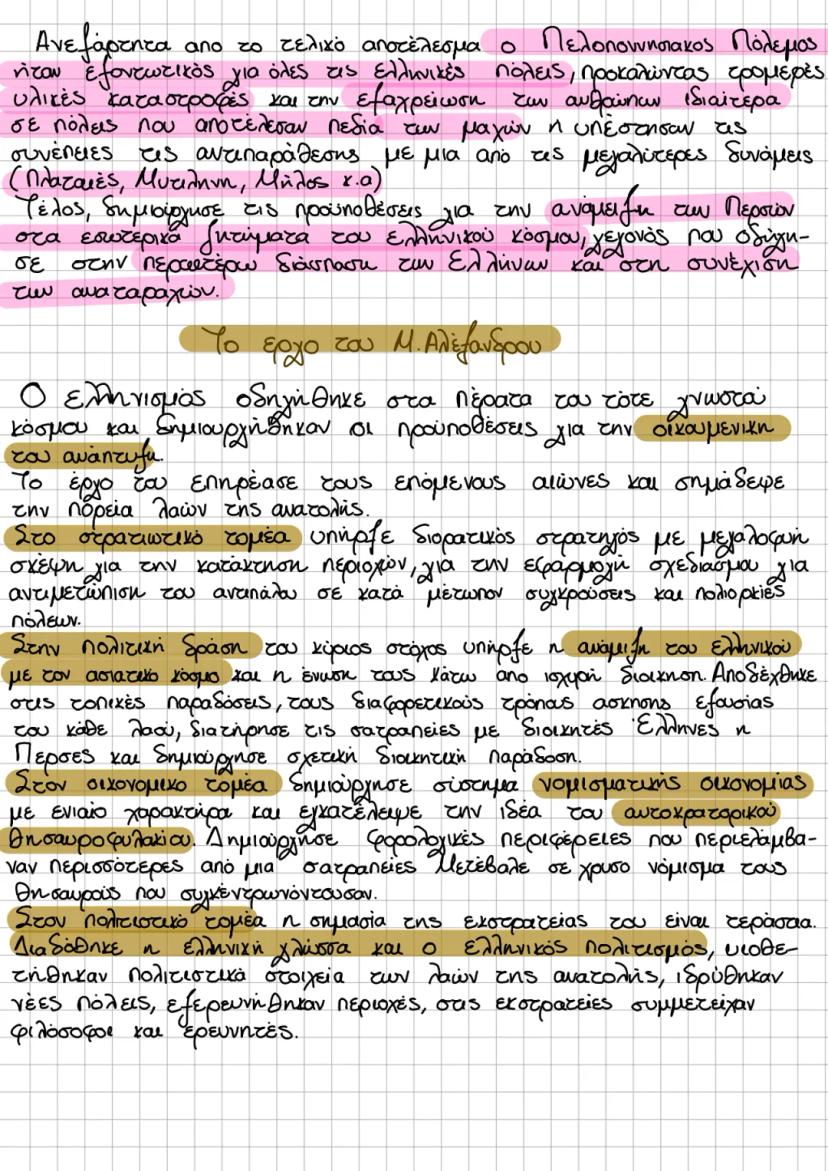 Ανεξάρτητα απο το τελικό αποτέλεσμα ο Πελοποννησιακος Πόλεμος
ήταν εξοντωτικός για όλες τις ελληνικές πόλεις, προκαλώντας τρομερές
υλικές καταστροφές και την εξαχρείωση των ανθρώπων ιδιαίτερα
σε πόλεις που αποτέλεσαν πεδία των μαχών η υπέστησαν τις
συνέπειες της αντιπαράθεσης με μια από τις μεγαλύτερες δυνάμεις
(Πλαταιές, Μυτιληνη, Μήλος κ.α)
Τέλος, δημιούργησε τις προϋποθέσεις για την ανάμειξη των Περσών
στα εσωτερικά ζητήματα του ελληνικού κόσμου, γεγονός που οδήγη-
σε στην περαιτέρω διάσπαση των Ελλήνων και στη συνέχιση
των αναταραχών.
Το εργο του Μ. Αλέξανδρου
Ο ελληνισμός οδηγήθηκε στα πέρατα του τότε γνωστού
κόσμου και δημιουργήθηκαν οι προϋποθέσεις για την οικουμενικη
του ανάπτυξη.
Το έργο του επηρέασε τους επόμενους αιώνες και σημάδεψε
την πορεία λαών της ανατολής.
Στο στρατιωτικό τομέα υπήρξε διορατικός στρατηγός με μεγαλοφυή
σκέψη για την κατάκτηση περιοχών, για την εφαρμογή σχεδιασμού για
αντιμετώπιση του αντιπάλου σε κατά μέτωπον συγκρούσεις και πολιορκίες
πόλεων.
Στην πολιτική δράση του κύριος στόχος υπήρξε η ανάμιξη του ελληνικού
με τον ασιατικο κόσμο και η ένωση τους κάτω απο ισχυρή διοικηση. Αποδέχθηκε
στις τοπικές παραδόσεις, τους διαφορετικούς τρόπους ασκησης εξουσίας
του κάθε λαού, διατήρησε τις σατραπείες με διοικητές Έλληνες η
Πέρσες και δημιούργησε σχετική διοικητική παράδοση.
Στον οικονομικο τομέα δημιούργησε σύστημα νομισματικής οικονομίας
με ενιαίο χαρακτήρα και εγκατέλειψε την ιδέα του αυτοκρατορικού
θησαυροφυλακίου. Δημιούργησε φορολογικές περιφέρειες που περιελάμβα-
ναν περισσότερες από μια σατραπείες Μετέβαλε σε χρυσο νόμισμα τους
θησαυρούς που συγκέντρωνόντουσαν.
Στον πολιτιστικό τομέα η σημασία της εκστρατείας του είναι τεράστια.
Διαδόθηκε η ελληνική γλώσσα και ο ελληνικός πολιτισμός, υιοθε-
τήθηκαν πολιτιστικά στοιχεία των λαών της ανατολής, ιδρύθηκαν
νέες πόλεις, εξερευνήθηκαν περιοχές, στις εκστρατείες συμμετείχαν
φιλόσοφοι και ερευνητές.